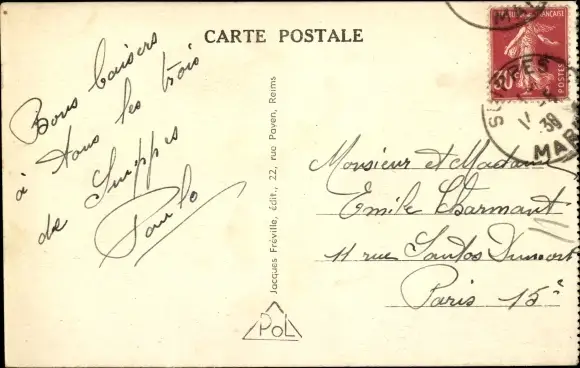 CARTE POSTALE
Bons baisers
à tous les trois
de Suippes
Paulo
Jacques Fréville, édit., 22, rue Paven, Reims
POL
FRANÇAISE
POSTES
SUIPPES
39
MAR
Monsieur et Madame
Emile
11 rue Santos Dumont
Paris 15e